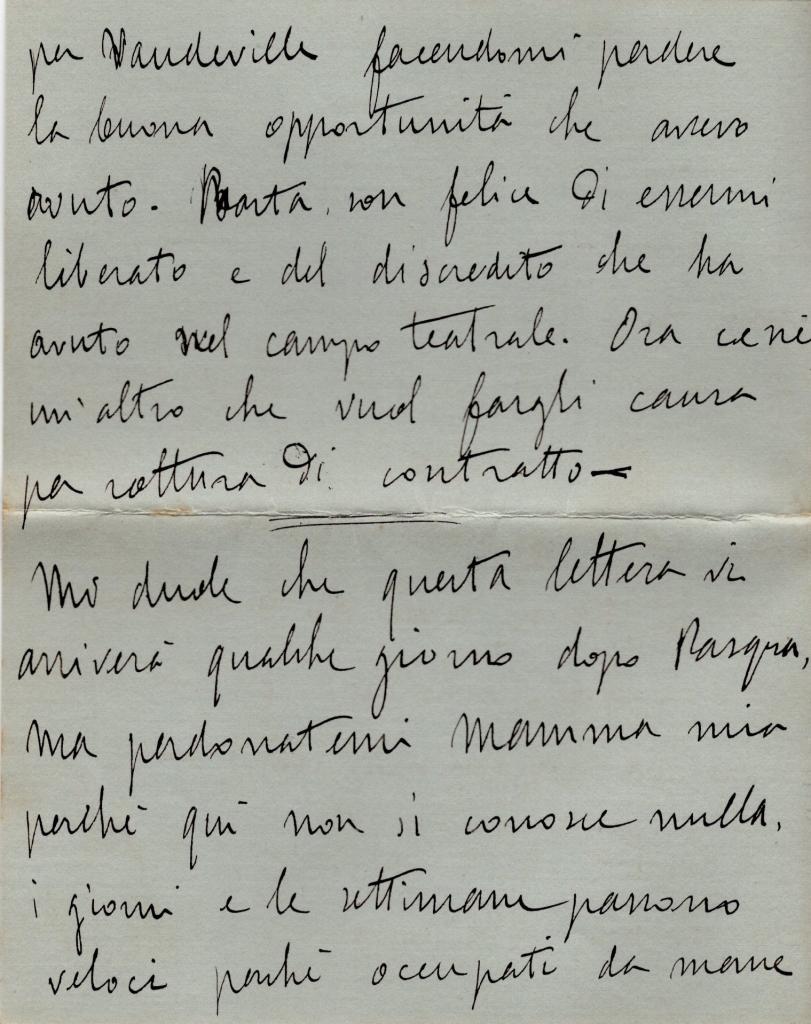 per Vaudeville facendomi perdere
la buona opportunità che avevo
avuto. Basta, son felice di essermi
liberato e del discredito che ha
avuto nel campo teatrale. Ora ce n'è
un'altro che vuol fargli causa
per rottura di contratto—
Mi duole che questa lettera vi
arriverà qualche giorno dopo Pasqua,
ma perdonatemi Mamma mia
perchè quì non si conosce nulla,
i giorni e le settimane passono
veloci perchè occupati da mane